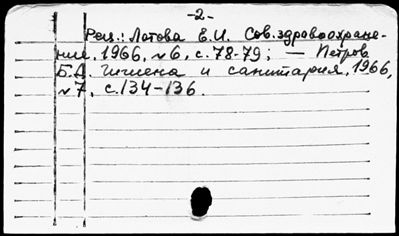 -2-
Рец.: Лотова Е.И. Сов. здравоохране-
ние, 1966, №6, с. 78-79; — Петров
Б.Д. Гигиена и санитария, 1966,
№7, с. 134-136.